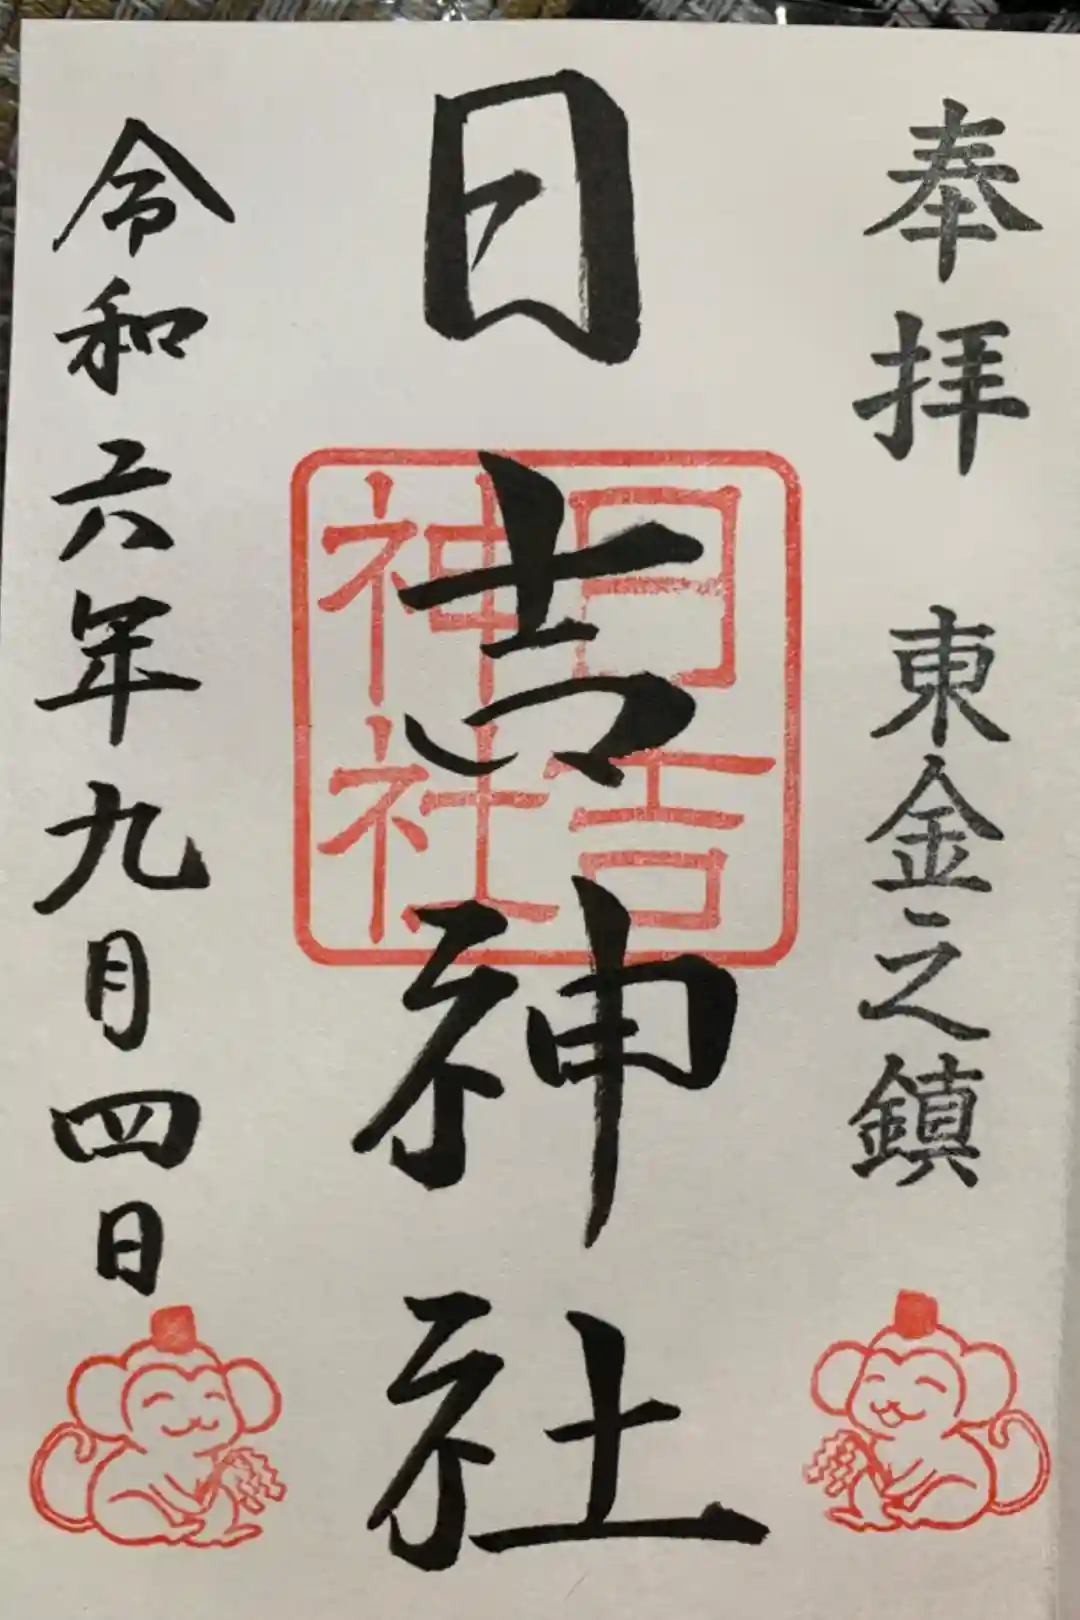 奉拝 東金之鎮
日吉神社
日吉
神社
令和六年九月四日